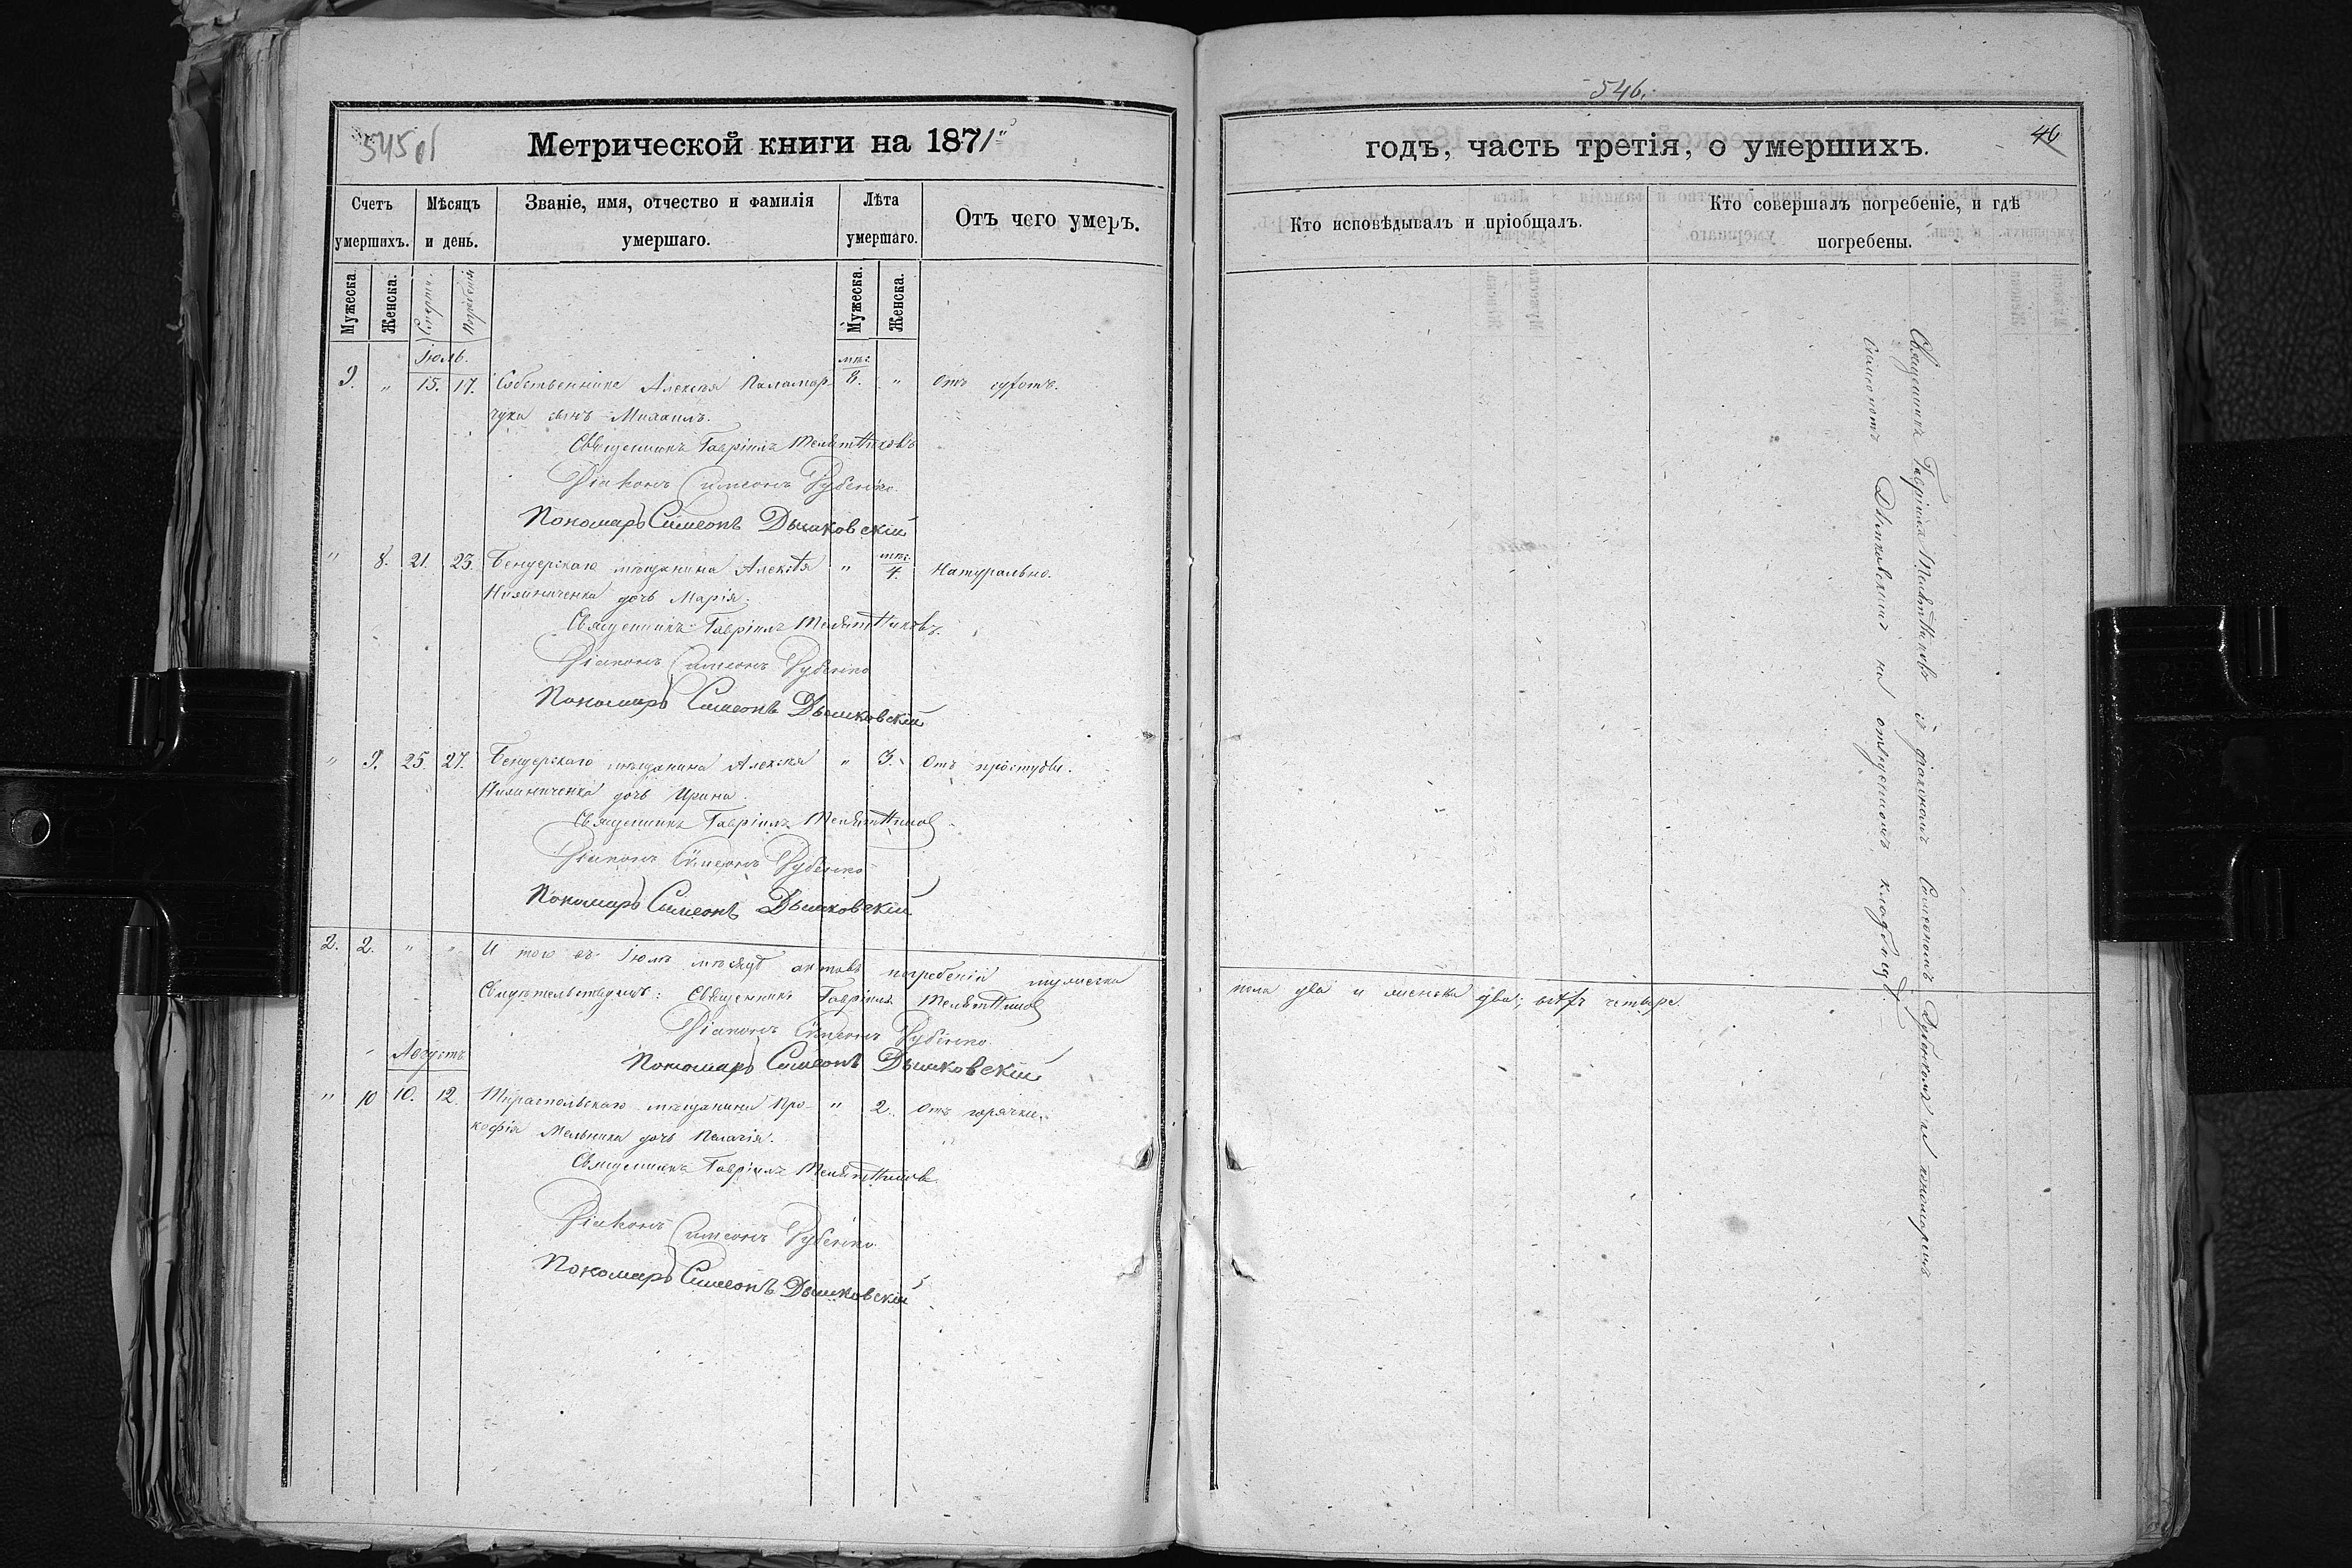 545 об
Метрической книги на 1871й
Счетъ умершихъ.
Мѣсяцъ и день.
Званіе, имя, отчество и фамилія умершаго.
Лѣта умершаго.
Отъ чего умеръ.
Мужеска.
Женска.
Смерти.
Погребенія
Мужеска.
Женска.
Іюль.
9. „ 15. 17. Собственника Алексѣя Паламар- мѣс. 8. „ Отъ сухотъ.
чука сынъ Михаилъ.
Священникъ Гавріилъ
Діаконъ Симеонъ Дубенко.
Пономарь Симеонъ Дымковскій
„ 8. 21. 23. Бендерскаго мѣщанина Алексѣя „ мѣс. 4. Натурально.
дочь Марія.
Священникъ Гавріилъ
Діаконъ Симеонъ Дубенко
Пономарь Симеонъ Дымковскій
„ 9. 25. 27. Бендерскаго мѣщанина Алексѣя „ 3. Отъ простуды.
дочь Ирина.
Священникъ Гавріилъ
Діаконъ Симеонъ Дубенко
Пономарь Симеонъ Дымковскій
2. 2. „ „ И того въ Іюлѣ мѣсяцѣ актовъ погребеній мужеска
Священникъ Гавріилъ
Діаконъ Симеонъ Дубенко
Пономарь Симеонъ Дымковскій
Августъ
„ 10 10. 12. Тираспольскаго мѣщанина Про- „ 2. Отъ горячки.
кофія Мельника дочь Пелагія.
Священникъ Гавріилъ
Діаконъ Симеонъ Дубенко
Пономарь Симеонъ Дымковскій
546.
46
годъ, часть третія, о умершихъ.
Кто исповѣдывалъ и пріобщалъ.
Кто совершалъ погребеніе, и гдѣ погребены.
пола два и женска два; всѣхъ четыре.
Священникъ Гавріилъ съ діакономъ Симеономъ Дубенкомъ и пономаремъ
Симеономъ Дымковскимъ на отведенномъ кладбищѣ.